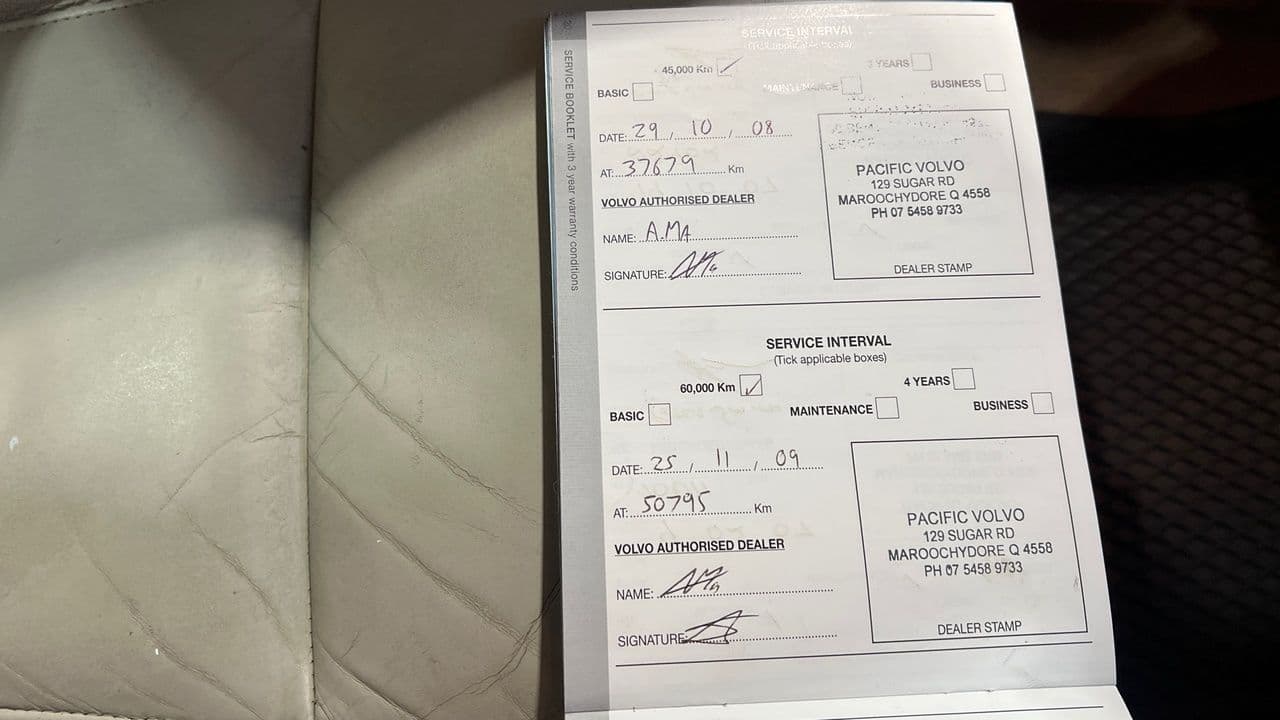 SERVICE BOOKLET with 3 year warranty conditions
SERVICE INTERVAL
(Tick applicable boxes)
45,000 Km 3 YEARS
BASIC MAINTENANCE BUSINESS
DATE: 29 / 10 / 08
AT: 37679 Km
VOLVO AUTHORISED DEALER
NAME: A.MA
SIGNATURE:
PACIFIC VOLVO
129 SUGAR RD
MAROOCHYDORE Q 4558
PH 07 5458 9733
DEALER STAMP
SERVICE INTERVAL
(Tick applicable boxes)
60,000 Km 4 YEARS
BASIC MAINTENANCE BUSINESS
DATE: 25 / 11 / 09
AT: 50795 Km
VOLVO AUTHORISED DEALER
NAME:
SIGNATURE:
PACIFIC VOLVO
129 SUGAR RD
MAROOCHYDORE Q 4558
PH 07 5458 9733
DEALER STAMP